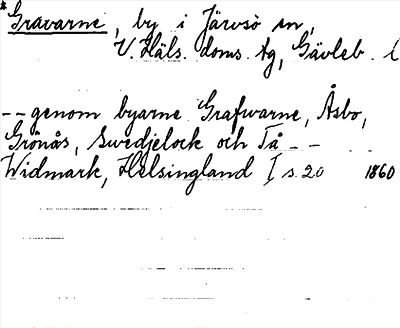 *Gravarne, by i Järvsö sn,
V. Häls. doms. tg, Gävleb. l
-- genom byarne Grafwarne, Åsbo,
Grönås, Swedjelock och Tå --
Widmark, Helsingland I s. 20 1860